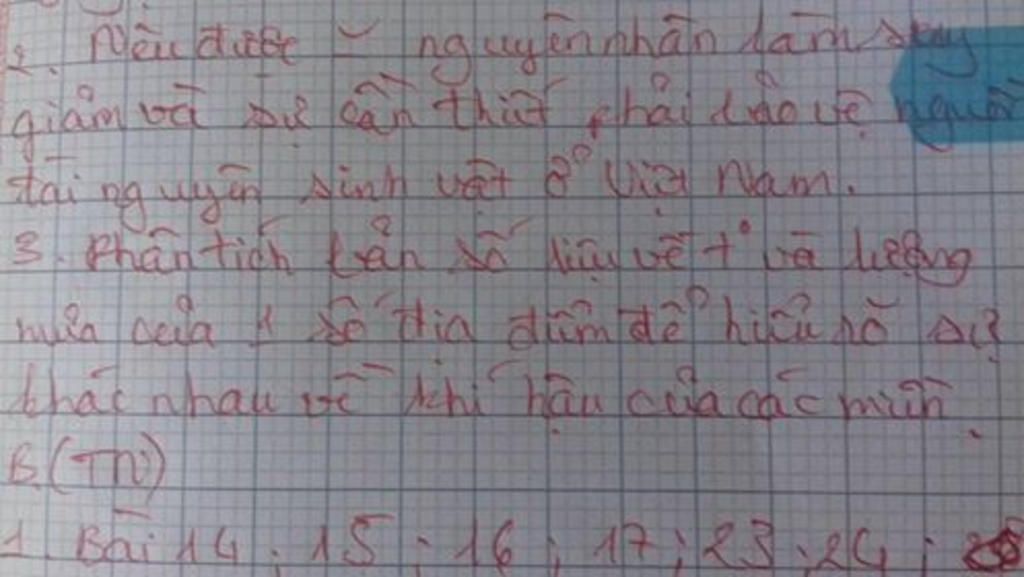 2. Nêu được ~ nguyên nhân làm suy
giảm và sự cần thiết phải bảo vệ nguồn
tài nguyên sinh vật ở Việt Nam.
3. Phân tích bản số liệu về t° và lượng
mưa của 1 số địa điểm để hiểu rõ sự
khác nhau về khí hậu của các miền
B. (TN)
1. Bài 14; 15; 16; 17; 23; 24;